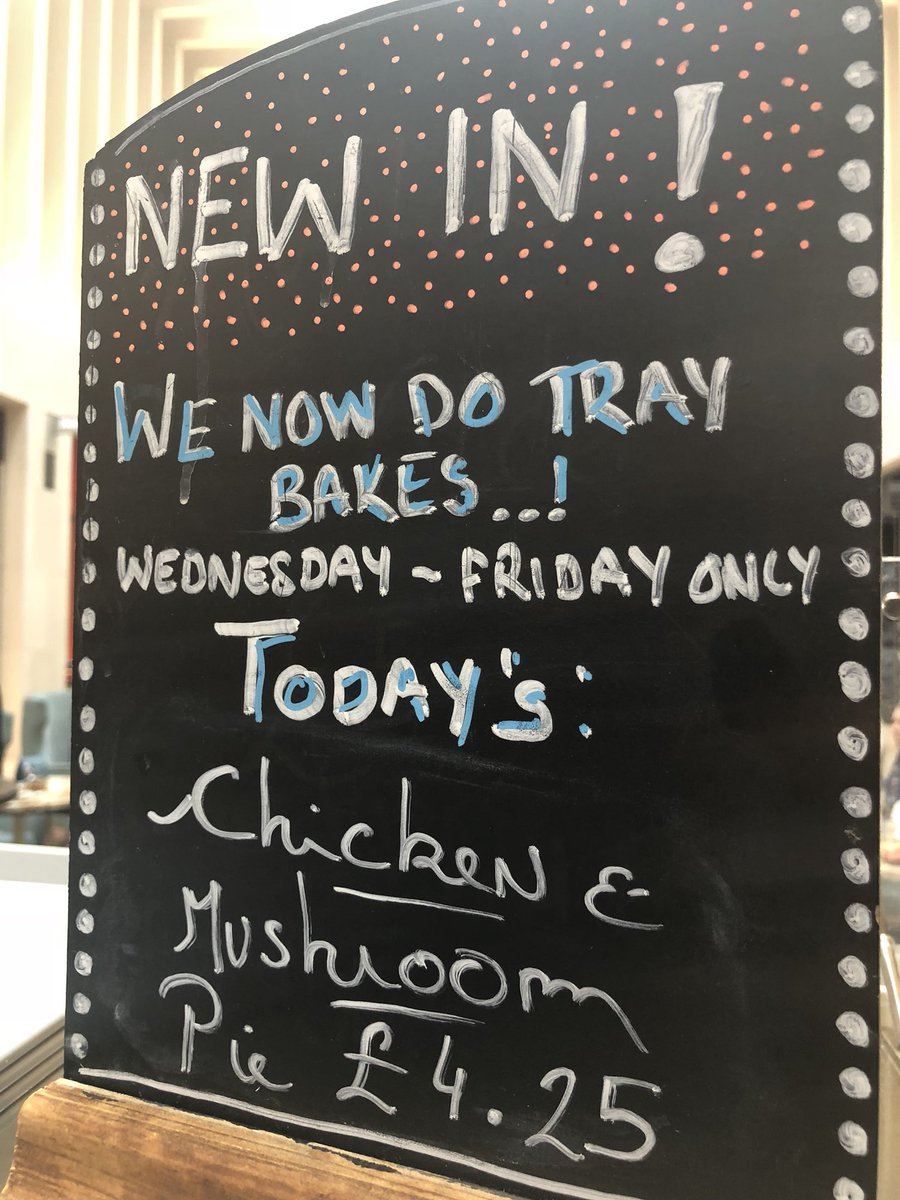 NEW IN!
WE NOW DO TRAY
BAKES...!
WEDNESDAY - FRIDAY ONLY
TODAY'S:
Chicken &
Mushroom
Pie £4.25